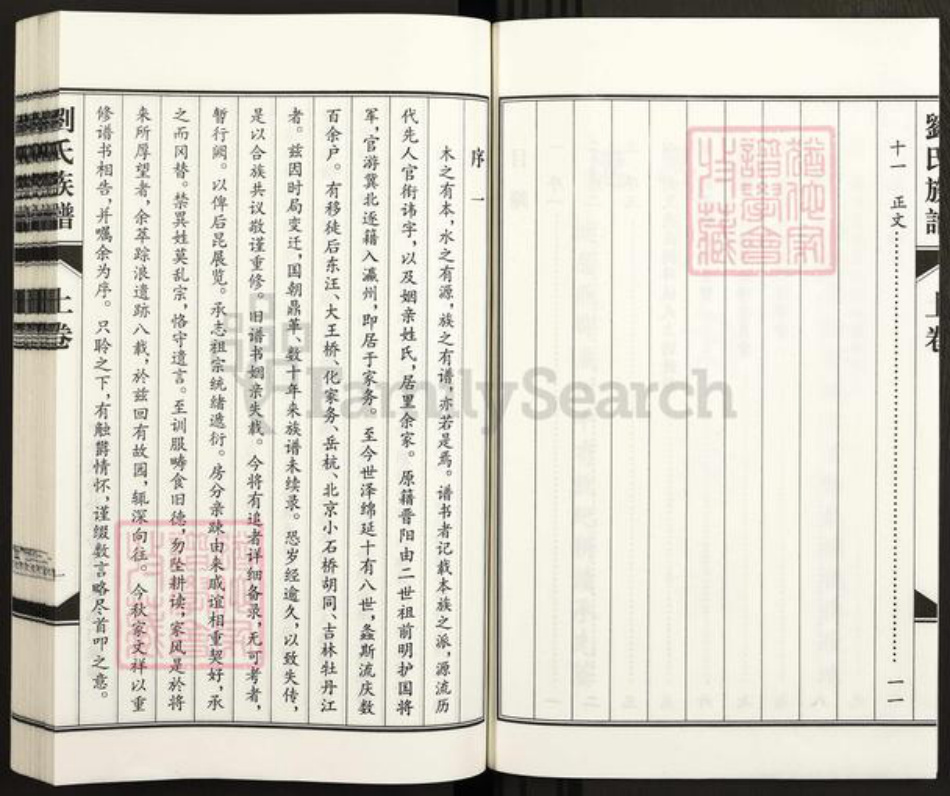 劉氏族譜 上卷
十一 正文 一一
序 一
木之有本，水之有源，族之有谱，亦若是焉。谱书者记载本族之派，源流历
代先人官衔讳字，以及姻亲姓氏，居里余家。原籍晋阳由二世祖前明护国将
军，官游冀北逐籍入瀛州，即居于家务。至今世泽绵延十有八世，螽斯流庆数
百余户。有移徒后东汪、大王桥、化家务、岳杭、北京小石桥胡同、吉林牡丹江
者。兹因时局变迁，国朝鼎革、数十年来族谱未续录。恐岁经逾久，以致失传，
是以合族共议敬谨重修。旧谱书姻亲失载。今将有追者详细备录，无可考者，
暂行阙。以俾后昆展览。承志祖宗统绪遞衍。房分亲疎由来戚谊相重契好，承
之而冈替。禁異姓莫乱宗，恪守遗言。至训服畴食旧德，勿坠耕读，家风是於将
来所厚望者，余萃踪浪遺跡八载，於兹回有故园，辄深向往。今秋家文祥以重
修谱书相告，并嘱余为序。只聆之下，有触爵情怀，谨缀数言略尽首叩之意。
劉氏族譜 上卷
FamilySearch